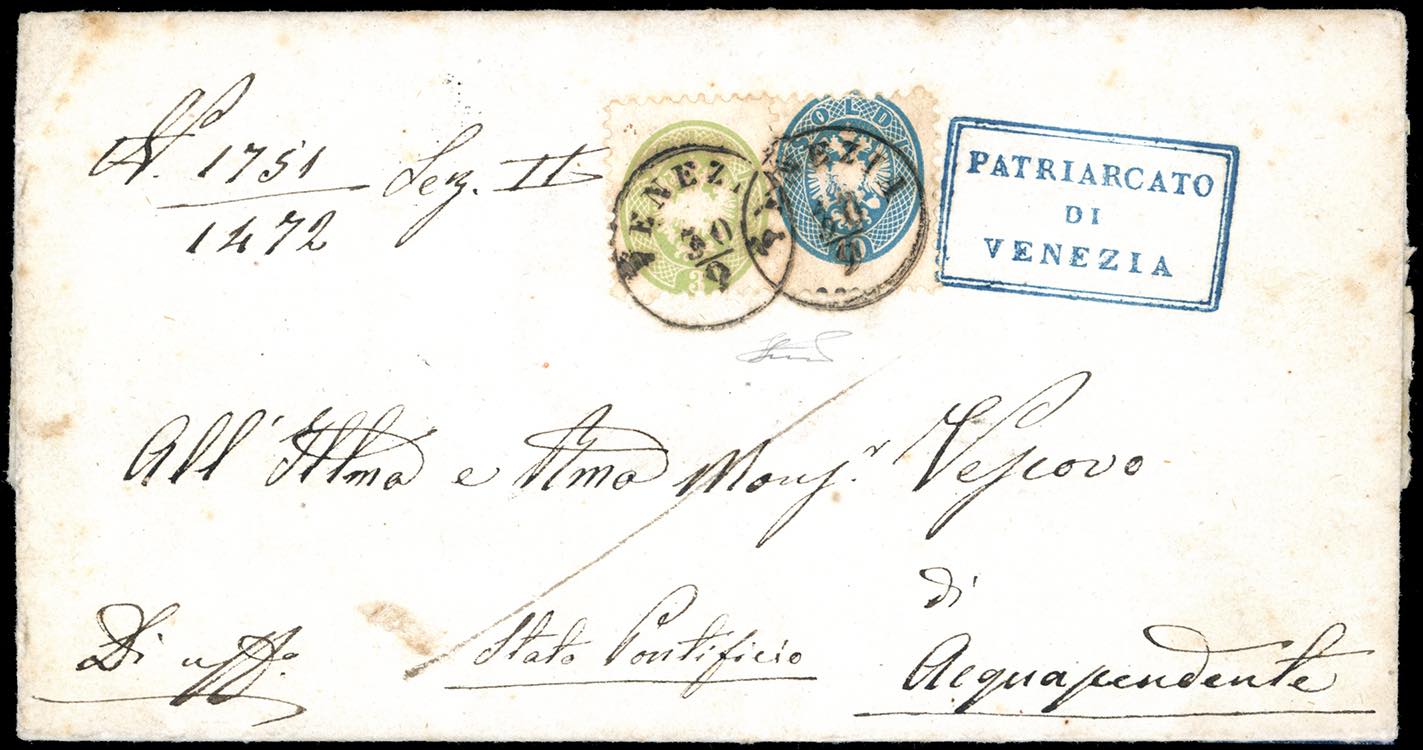 N.º 1751 Sez. II
1472
SOLDI
3
10
VENEZIA
30/9
VENEZIA
30/9
PATRIARCATO
DI
VENEZIA
All' Illma e Rma Monsr. Vescovo
di
Di uffo. Stato Pontificio Acquapendente